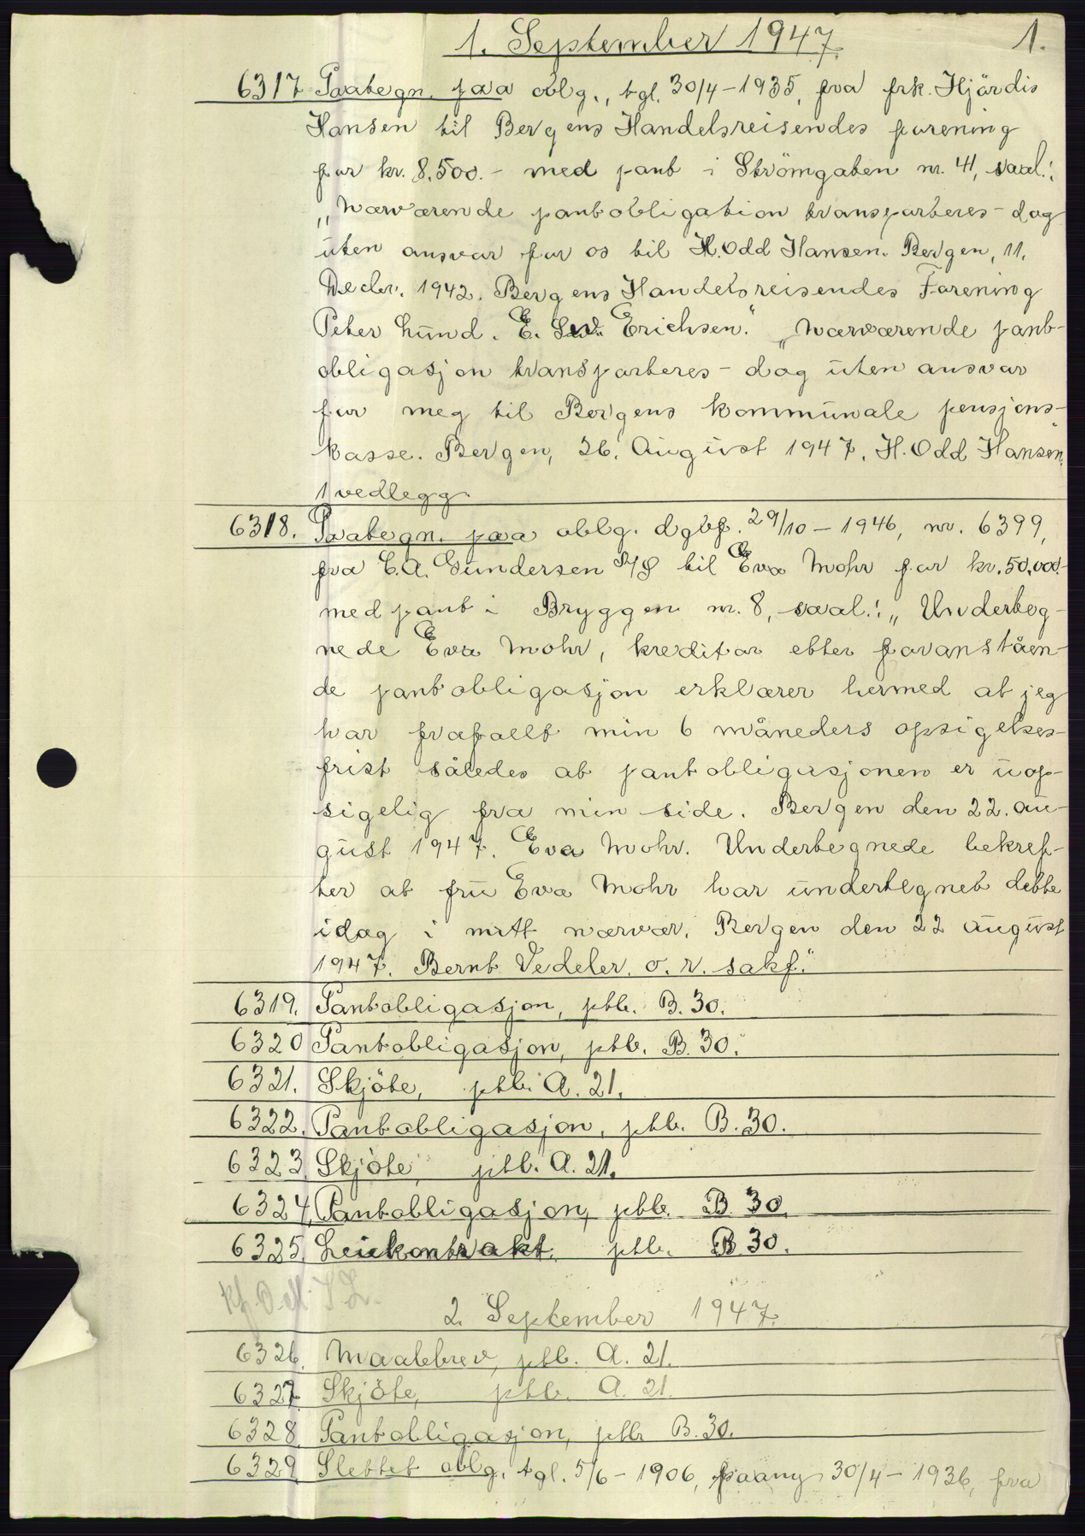 1. September 1947. 1.
6317 Paategn. paa oblg., tgl. 30/4-1935, fra frk. Hjördis
Hansen til Bergens Handelsreisendes forening
for kr. 8.500.- med pant i Strömgaten nr. 41, saal.:
„Nærværende pantobligation transporteres i dag
uten ansvar for os til H. Odd Hansen. Bergen, 11.
Decbr. 1942. Bergens Handelsreisendes Forening
Peter Lund. E. Erichsen." „Nærværende pant-
obligasjon transporteres i dag uten ansvar
for meg til Bergens kommunale pensjons-
kasse. Bergen, 26. August 1947. H. Odd Hansen."
1 vedlegg.
6318. Paategn. paa oblg. dgbf. 29/10-1946, nr. 6399,
fra C.A. Gundersen A/S til Eva Mohr for kr. 50.000.-
med pant i Bryggen nr. 8, saal.: „Underteg-
nede Eva Mohr, kreditor etter foranståen-
de pantobligasjon erklærer hermed at jeg
har frafallt min 6 måneders opsigelses-
frist således at pantobligasjonen er uop-
sigelig fra min side. Bergen den 22. au-
gust 1947. Eva Mohr. Undertegnede bekref-
ter at fru Eva Mohr har undertegnet dette
idag i mitt nærvær. Bergen den 22 august
1947. Bernt Vedeler. o. r. sakf."
6319. Pantobligasjon, ptb. B. 30.
6320 Pantobligasjon, ptb. B. 30.
6321. Skjöte, ptb. A. 21.
6322. Pantobligasjon, ptb. B. 30.
6323. Skjöte, ptb. A. 21.
6324. Pantobligasjon, ptb. B 30.
6325. Leiekontrakt. ptb. B 30.
2. September 1947.
6326. Maalebrev, ptb. A. 21.
6327 Skjöte, ptb. A. 21.
6328. Pantobligasjon, ptb B. 30.
6329 Slettet oblg. tgl. 5/6-1906, paany 30/4-1936, fra